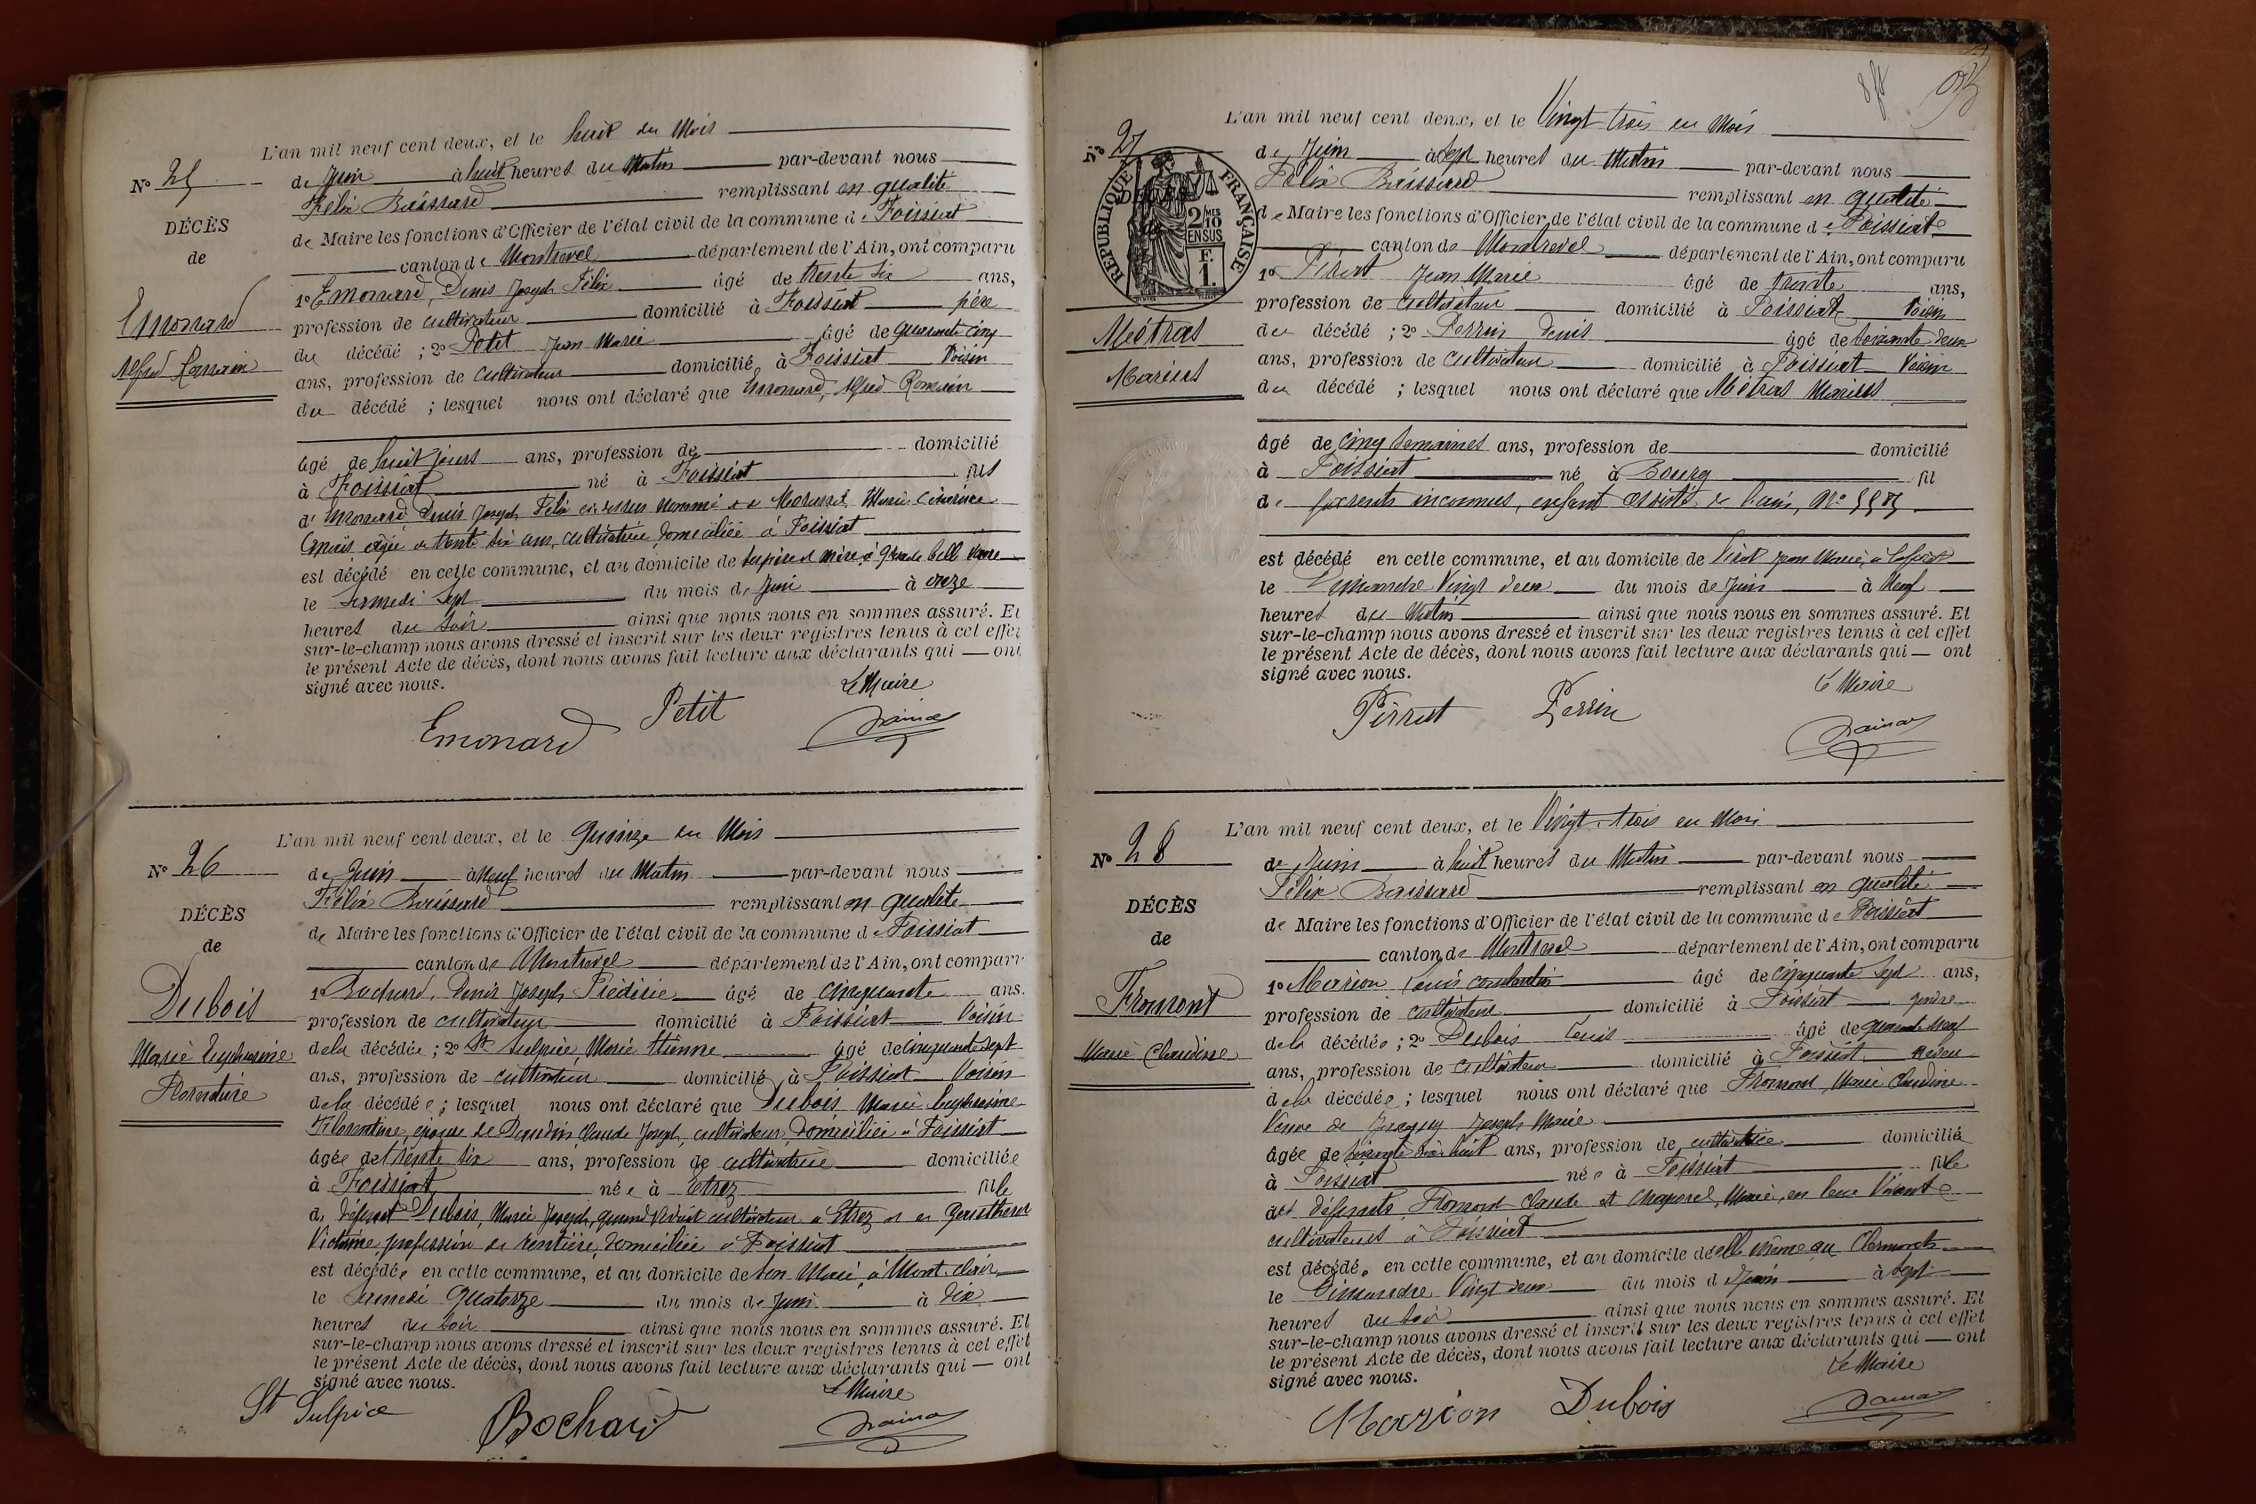 L'an mil neuf cent deux, et le huit du Mois
N° 25
de Juin à huit heures du Matin par-devant nous
Félix Buissard remplissant en qualité
DÉCÈS
de Maire les fonctions d'Officier de l'état civil de la commune de Foissiat
de
canton de Montrevel département de l'Ain, ont comparu
1° Emonard, Denis Joseph Félix âgé de trente six ans,
Emonard
profession de cultivateur domicilié à Foissiat père
du décédé ; 2° Petit Jean Marie âgé de quarante cinq
Alfred Romain
ans, profession de cultivateur domicilié à Foissiat Voisin
du décédé ; lesquels nous ont déclaré que Emonard, Alfred Romain
âgé de huit jours ans, profession de domicilié
à Foissiat né à Foissiat fils
d' Emonard Denis Joseph Félix ci-dessus nommé et de Marie
âgée de trente six ans, cultivatrice domiciliée à Foissiat
est décédé en cette commune, et au domicile de ses père et mère à
le Samedi Sept du mois de Juin à onze
heures du soir ainsi que nous nous en sommes assuré. Et
sur-le-champ nous avons dressé et inscrit sur les deux registres tenus à cet effet
le présent Acte de décès, dont nous avons fait lecture aux déclarants qui — ont
signé avec nous.
Le Maire
Emonard Petit
L'an mil neuf cent deux, et le Quinze du Mois
N° 26
de Juin à Neuf heures du Matin par-devant nous
Félix Buissard remplissant en qualité
DÉCÈS
de Maire les fonctions d'Officier de l'état civil de la commune de Foissiat
de
canton de Montrevel département de l'Ain, ont comparu
Dubois
1° Bochard, Denis Joseph âgé de cinquante ans.
profession de cultivateur domicilié à Foissiat Voisin
Marie Euphrosine
de la décédée ; 2° St Sulpice, Marie Etienne âgé de cinquante sept
ans, profession de cultivateur domicilié à Foissiat Voisin
Florentine
de la décédée ; lesquels nous ont déclaré que Dubois Marie Euphrosine
Florentine, épouse de Claude Joseph, cultivateur, domiciliée à Foissiat
âgée de trente six ans, profession de cultivatrice domiciliée
à Foissiat née à Etrez fille
de défunt Dubois, Marie Joseph, quand vivait cultivateur à Etrez et de
Victorine, profession de rentière, domiciliée à Foissiat
est décédée en cette commune, et au domicile de son Mari, à Mont
le Samedi Quatorze du mois de Juin à dix
heures du soir ainsi que nous nous en sommes assuré. Et
sur-le-champ nous avons dressé et inscrit sur les deux registres tenus à cet effet
le présent Acte de décès, dont nous avons fait lecture aux déclarants qui — ont
signé avec nous.
Le Maire
St Sulpice Bochard
L'an mil neuf cent deux, et le Vingt trois du Mois
N° 27
de Juin à Sept heures du Matin par-devant nous
Félix Buissard remplissant en qualité
RÉPUBLIQUE FRANÇAISE
2/10 EN SUS
F. 1.
de Maire les fonctions d'Officier de l'état civil de la commune de Foissiat
canton de Montrevel département de l'Ain, ont comparu
1° Jean Marie âgé de trente ans,
profession de cultivateur domicilié à Foissiat Voisin
Métras
du décédé ; 2° Perrin Denis âgé de soixante deux
ans, profession de cultivateur domicilié à Foissiat Voisin
Marius
du décédé ; lesquels nous ont déclaré que Métras Marius
âgé de cinq semaines ans, profession de domicilié
à Foissiat né à Bourg fils
de parents inconnus, enfant assisté de l'ain, N°
est décédé en cette commune, et au domicile de Jean Marie, à
le Dimanche Vingt deux du mois de Juin à Neuf
heures du Matin ainsi que nous nous en sommes assuré. Et
sur-le-champ nous avons dressé et inscrit sur les deux registres tenus à cet effet
le présent Acte de décès, dont nous avons fait lecture aux déclarants qui — ont
signé avec nous.
Le Maire
Perrin
L'an mil neuf cent deux, et le Vingt trois du Mois
N° 28
de Juin à huit heures du Matin par-devant nous
Félix Buissard remplissant en qualité
DÉCÈS
de Maire les fonctions d'Officier de l'état civil de la commune de Foissiat
de
canton de Montrevel département de l'Ain, ont comparu
Fromont
1° Marion Louis Constantin âgé de cinquante sept ans,
profession de cultivateur domicilié à Foissiat gendre
Marie Claudine
de la décédée ; 2° Dubois Louis âgé de quarante neuf
ans, profession de cultivateur domicilié à Foissiat neveu
de la décédée ; lesquels nous ont déclaré que Fromont Marie Claudine
Veuve de Joseph Marie
âgée de soixante dix huit ans, profession de cultivatrice domiciliée
à Foissiat née à Foissiat fille
des défunts Fromont Claude et Marie, en leur vivant
cultivateurs à Foissiat
est décédée en cette commune, et au domicile d'elle même au
le Dimanche Vingt deux du mois de Juin à Sept
heures du soir ainsi que nous nous en sommes assuré. Et
sur-le-champ nous avons dressé et inscrit sur les deux registres tenus à cet effet
le présent Acte de décès, dont nous avons fait lecture aux déclarants qui — ont
signé avec nous.
Le Maire
Marion Dubois